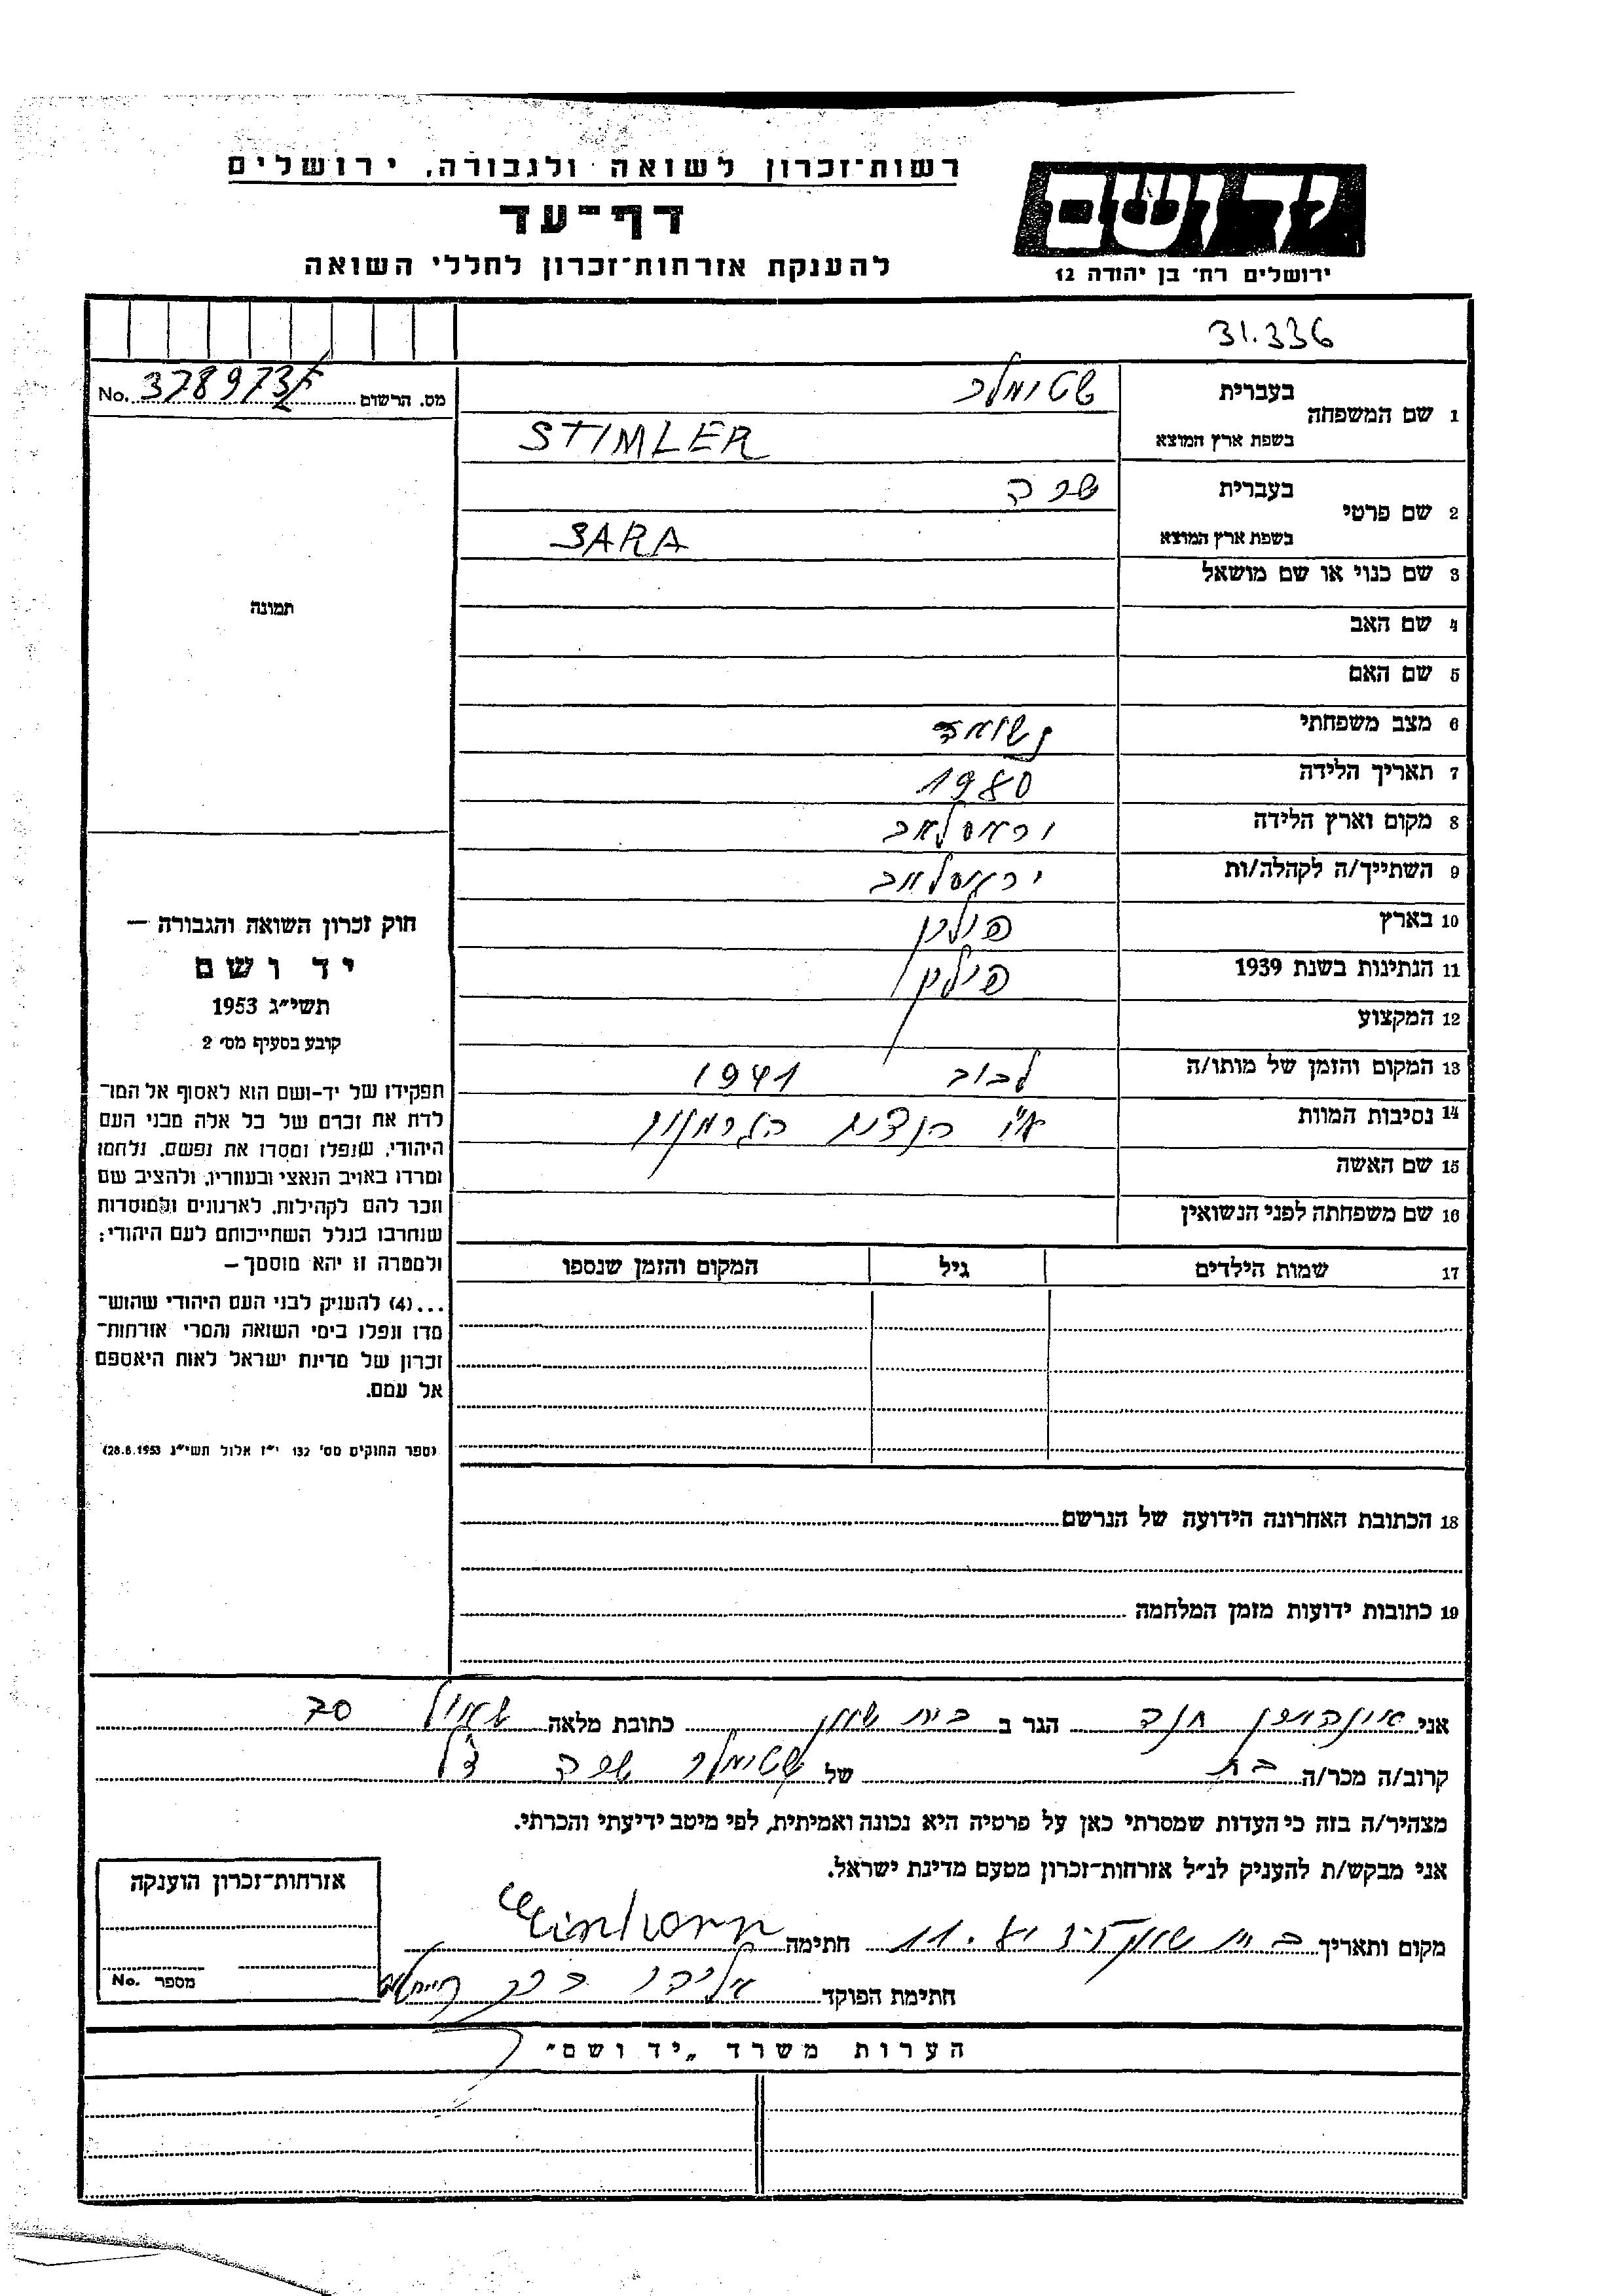 רשות־זכרון לשואה ולגבורה, ירושלים
דף־עד
להענקת אזרחות־זכרון לחללי השואה
יד ושם
ירושלים רח׳ בן יהודה 12
31.336
No. 378973 מס. הרשום
1 שם המשפחה
בעברית שטימלר
בשפת ארץ המוצא STIMLER
2 שם פרטי
בעברית שרה
בשפת ארץ המוצא SARA
3 שם כנוי או שם מושאל
4 שם האב
5 שם האם
6 מצב משפחתי נשואה
7 תאריך הלידה
8 מקום וארץ הלידה
9 השתייך/ה לקהלה/ות יראסלאב
10 בארץ פולין
11 הנתינות בשנת 1939 פולין
12 המקצוע
13 המקום והזמן של מותו/ה לבוב 1941
14 נסיבות המוות
15 שם האשה
16 שם משפחתה לפני הנשואין
17 שמות הילדים גיל המקום והזמן שנספו
18 הכתובת האחרונה הידועה של הנרשם
19 כתובות ידועות מזמן המלחמה
תמונה
חוק זכרון השואה והגבורה —
יד ושם
תשי״ג 1953
קובע בסעיף מס׳ 2
תפקידו של יד-ושם הוא לאסוף אל המו־
לדת את זכרם של כל אלה מבני העם
היהודי, שנפלו ומסרו את נפשם, נלחמו
ומרדו באויב הנאצי ובעוזריו, ולהציב שם
וזכר להם לקהילות, לארגונים ולמוסדות
שנחרבו בגלל השתייכותם לעם היהודי;
ולמטרה זו יהא מוסמך —
...(4) להעניק לבני העם היהודי שהוש־
מדו ונפלו בימי השואה והמרי אזרחות־
זכרון של מדינת ישראל לאות היאספם
אל עמם.
(ספר החוקים מס׳ 132 י״ז אלול תשי״ג 28.8.1953)
אני איינהורן חנה הגר ב בית שאן כתובת מלאה שאול 70
קרוב/ה מכר/ה בת של שטימלר שרה ז״ל
מצהיר/ה בזה כי העדות שמסרתי כאן על פרטיה היא נכונה ואמיתית, לפי מיטב ידיעתי והכרתי.
אני מבקש/ת להעניק לנ״ל אזרחות-זכרון מטעם מדינת ישראל.
מקום ותאריך בית שאן חתימה Einhorn
חתימת הפוקד
אזרחות־זכרון הוענקה
No. מספר
הערות משרד „יד ושם״